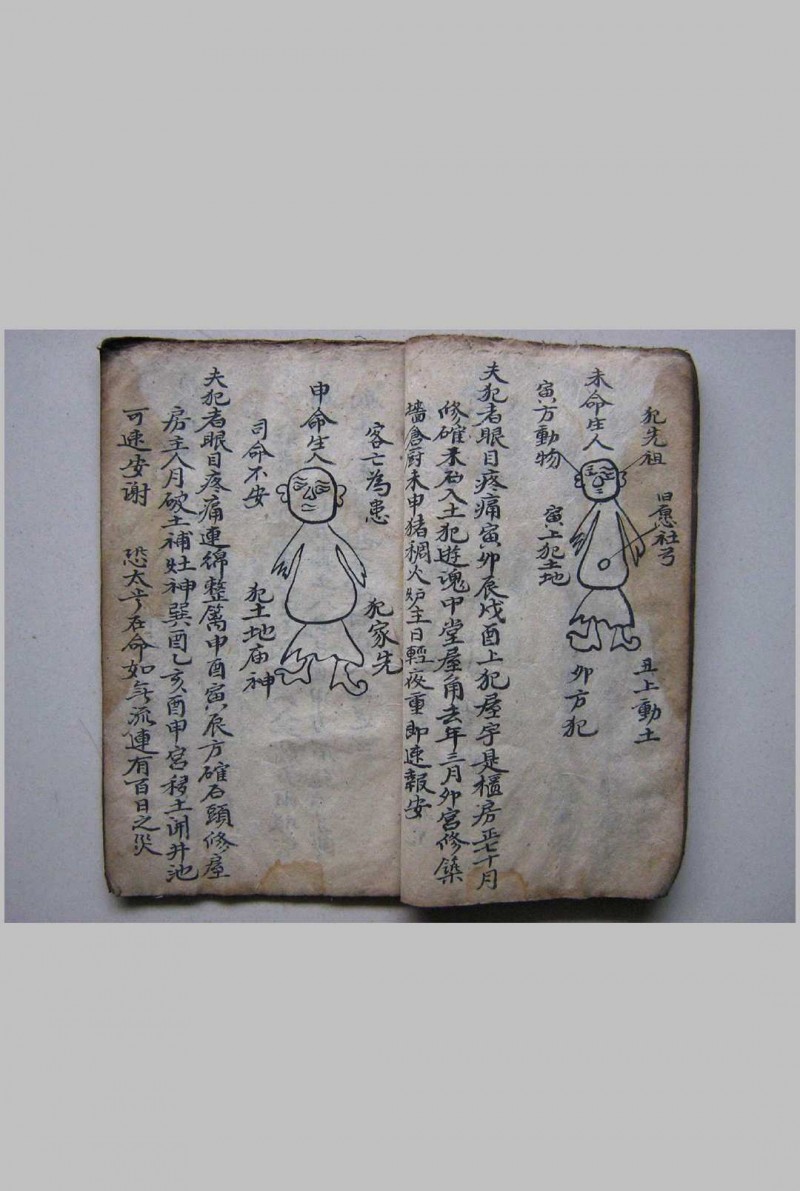 犯先祖
旧愿社弓
丑上動土
未命生人
卯方犯
寅方動物
寅上犯土地
夫犯者眼目疼痛寅卯辰戌酉上犯屋宇是櫃房正七十月
修碓磨石入土犯遊魂中堂屋角去年三月卯宮修築
墙倉厨未申猪稠火炉主日輕夜重即速報安
客亡為患
犯家先
申命生人
司命不安
犯土地庙神
夫犯者眼目疼痛連綿整篱申酉寅辰方碓石頭修屋
房主八月破土補灶神巽酉乙亥酉申宮移土開井池
可速安謝 恐太岁在命如年流連有百日之災